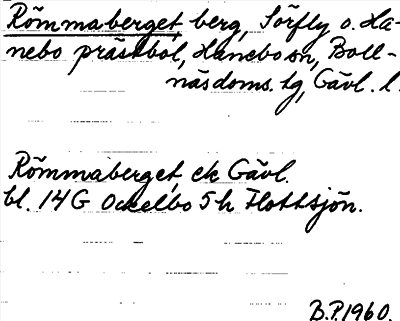 Römmaberget, berg, Sörfly o. Ha-
nebo prästbol, Hanebo sn, Boll-
näsdoms. tg, Gävl. l.
Römmaberget, ek Gävl.
bl. 14G Ockelbo 5h Flottsjön.
B.P. 1960.